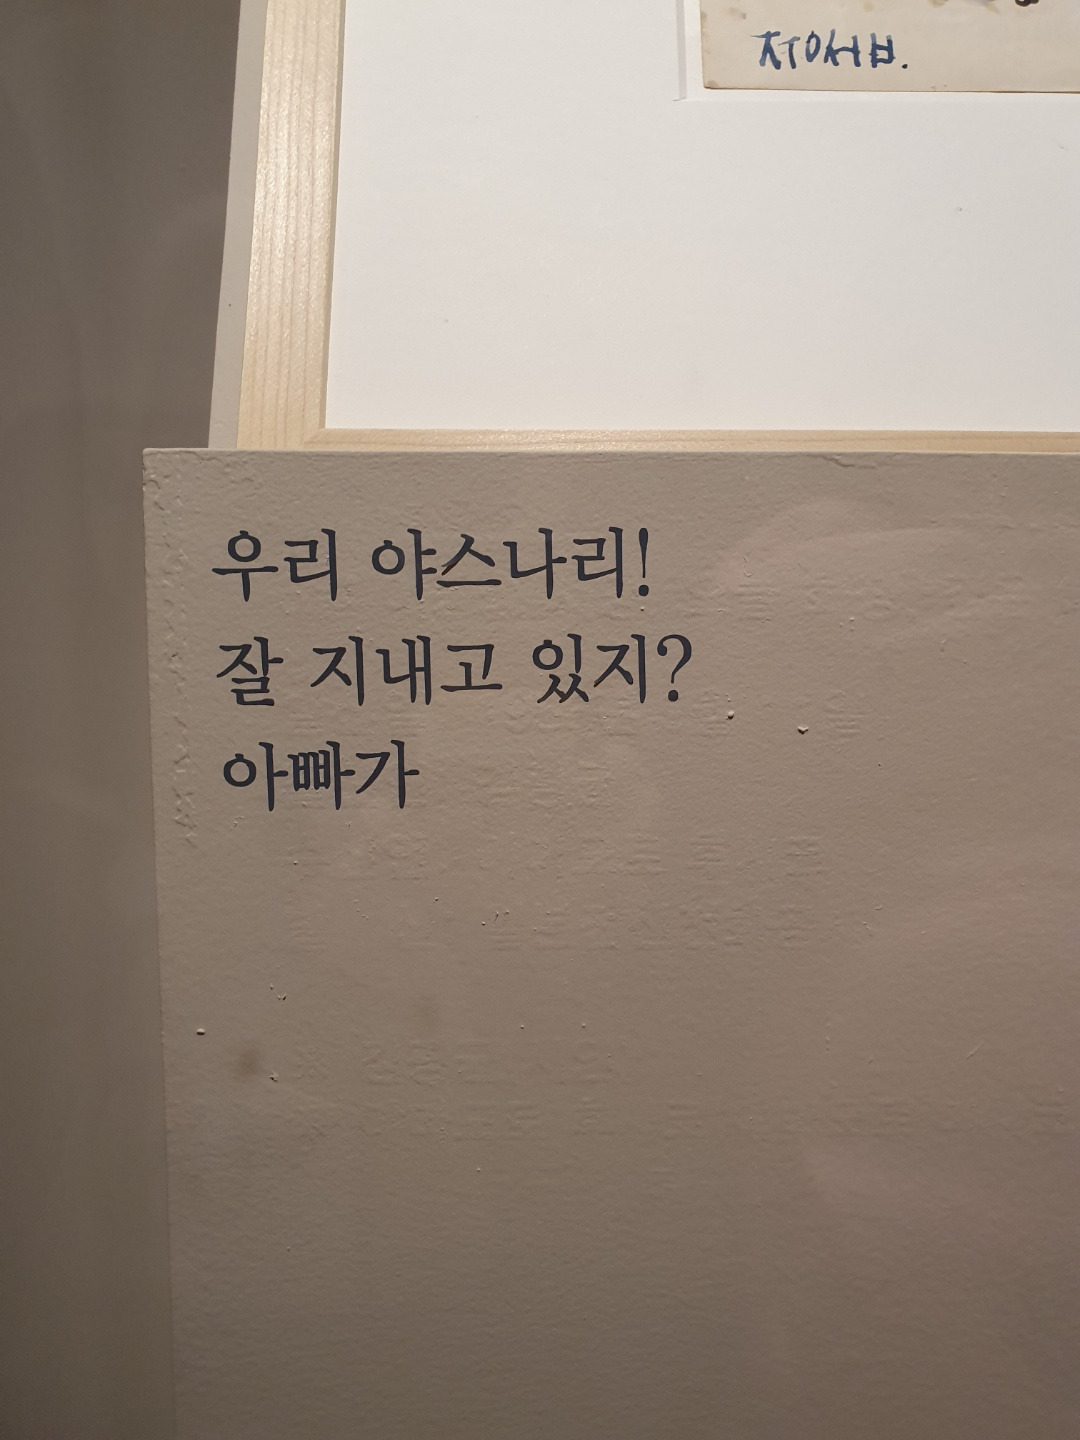 ㅈㅜㅇㅅㅓㅂ.
우리 야스나리!
잘 지내고 있지?
아빠가